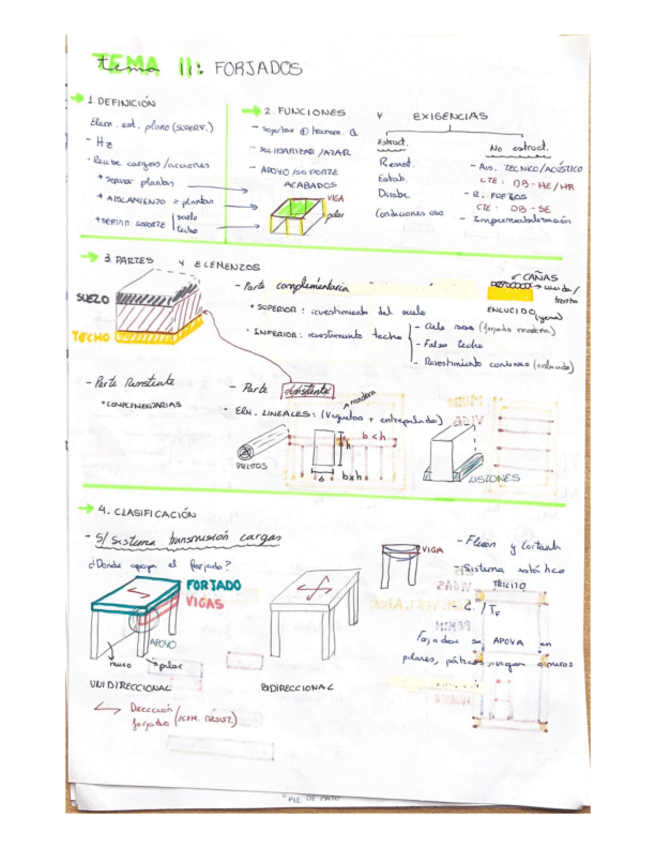 TEMA 11: FORJADOS
1. DEFINICIÓN
Elem. est. plano (SUPERF.)
- Hz
- Recibe cargas/acciones
* Separar plantas
* AISLAMIENTO x plantas
* SERVIR SOPORTE | suelo
techo
2. FUNCIONES
- Soportar ⊕ transm. Q
- SOLIDARIZAR /ATAR
- APOYO/SOPORTE
ACABADOS
VIGA
pilar
Y EXIGENCIAS
Estruct.
Resist.
Estab.
Condiciones uso
No estruct.
- Ais. TÉCNICO/ACÚSTICO
CTE: DB-HE/HR
- R. FUEGOS
CTE: DB-SE
3. PARTES Y ELEMENTOS
SUELO
TECHO
- Parte complementaria
* SUPERIOR: revestimiento del suelo
* INFERIOR: revestimiento techo
- Cielo raso (forjado madera)
- Falso techo
- Revestimiento continuo (enlucido)
CAÑAS
ENLUCIDO (yeso)
- Parte Resistente
* COMPLEMENTARIAS
- Parte resistente
- Elm. LINEALES: (Viguetas + entrepalcado)
madera
ROLLITOS
h
b<h
b
bxh
LISTONES
4. CLASIFICACIÓN
- S/ Sistema transmisión cargas
¿Donde apoya el forjado?
FORJADO
VIGAS
APOYO
muro
pilar
UNIDIRECCIONAL
BIDIRECCIONAL
Dirección
forjado (ELEM. RESIST.)
VIGA
- Flexión y Cortante
- Sistema estático
Forjados se APOYA en
pilares, pórticos, vigas o muros
* PIE DE PATO